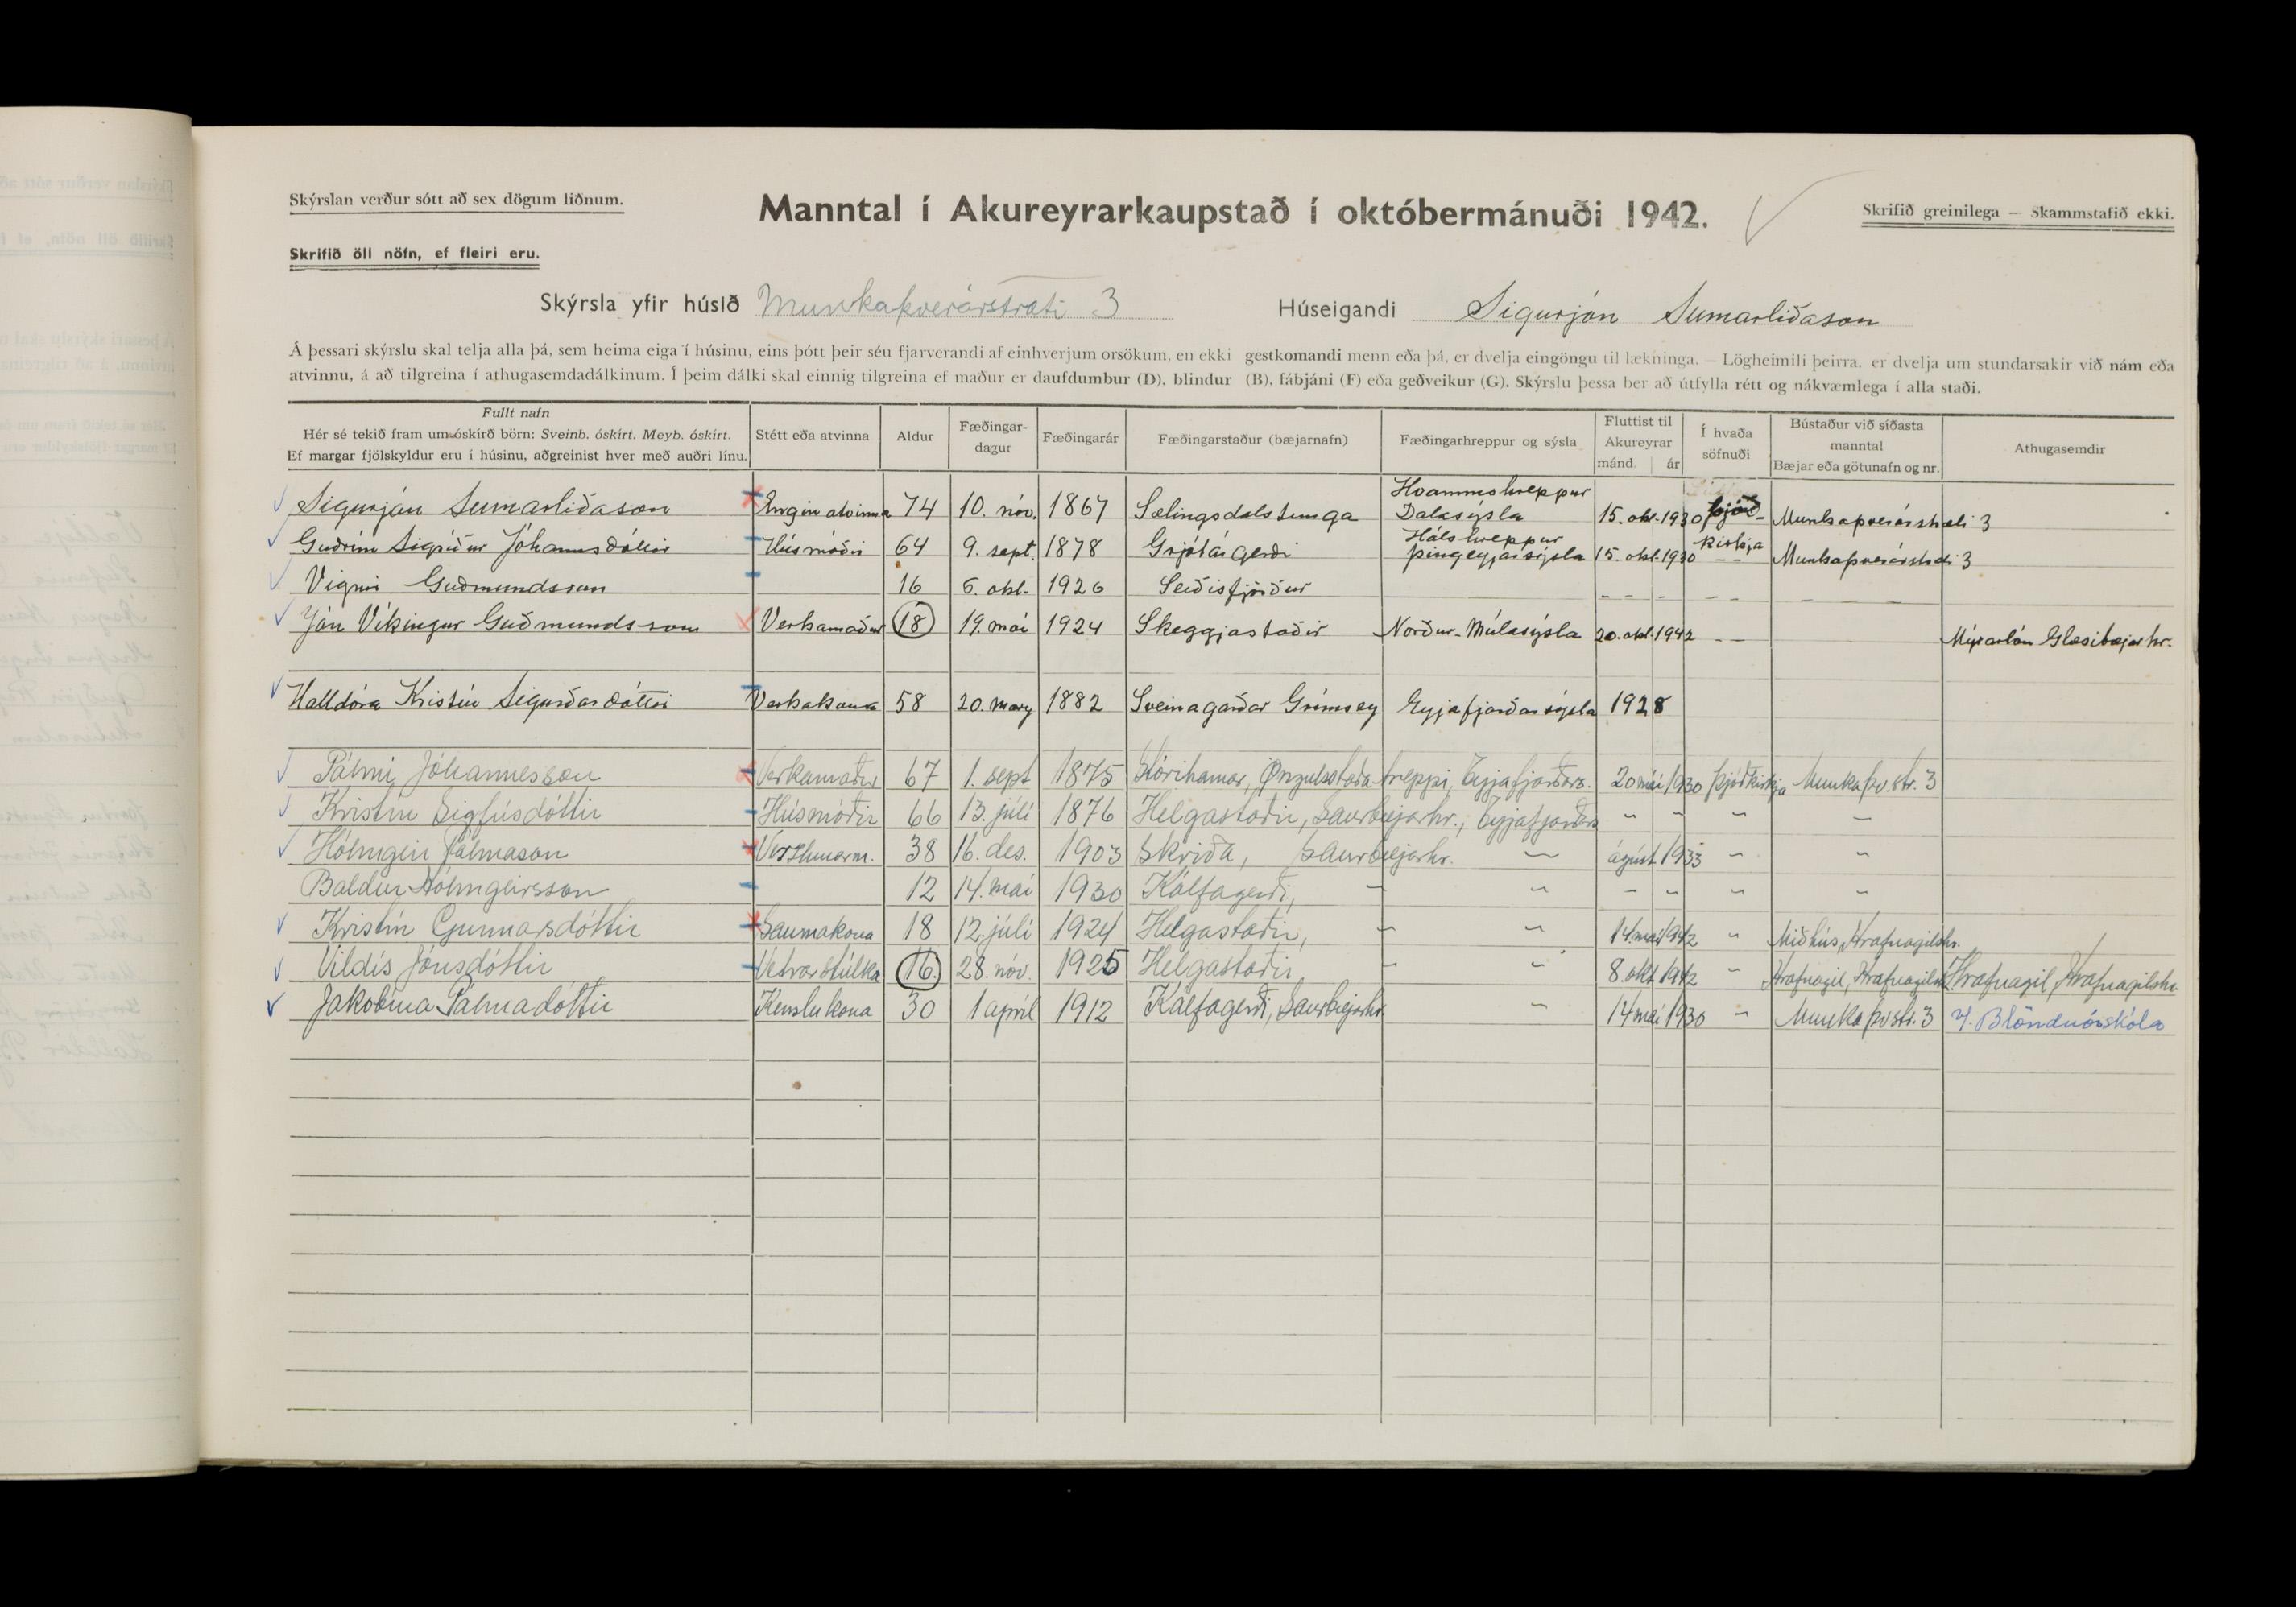 Skýrslan verður sótt að sex dögum liðnum.
Manntal í Akureyrarkaupstað í októbermánuði 1942.
Skrifið greinilega — Skammstafið ekki.
Skrifið öll nöfn, ef fleiri eru.
Skýrsla yfir húsið Munkaþverárstræti 3 Húseigandi Sigurjón Sumarliðason
Á þessari skýrslu skal telja alla þá, sem heima eiga í húsinu, eins þótt þeir séu fjarverandi af einhverjum orsökum, en ekki gestkomandi menn eða þá, er dvelja eingöngu til lækninga. — Lögheimili þeirra. er dvelja um stundarsakir við nám eða
atvinnu, á að tilgreina í athugasemdadálkinum. Í þeim dálki skal einnig tilgreina ef maður er daufdumbur (D), blindur (B), fábjáni (F) eða geðveikur (G). Skýrslu þessa ber að útfylla rétt og nákvæmlega í alla staði.
Fullt nafn
Hér sé tekið fram um óskírð börn: Sveinb. óskírt. Meyb. óskírt.
Ef margar fjölskyldur eru í húsinu, aðgreinist hver með auðri línu.
Stétt eða atvinna
Aldur
Fæðingar-
dagur
Fæðingarár
Fæðingarstaður (bæjarnafn)
Fæðingarhreppur og sýsla
Fluttist til
Akureyrar
mánd. ár
Í hvaða
söfnuði
Bústaður við síðasta
manntal
Bæjar eða götunafn og nr.
Athugasemdir
Sigurján Sumarliðason Engin atvinna 74 10. nóv. 1867 Sælingsdalstunga Hvammshreppur Dalasýsla 15. okt. 1930 þjóð- Munkaþverárstræti 3
Guðrún Sigríður Jóhannsdóttir Húsmóðir 64 9. sept. 1878 Grjótárgerði Hálshreppur Þingeyjarsýsla 15. okt. 1930 kirkja Munkaþverárstræti 3
Vignir Guðmundsson 16 6. okt. 1926 Seiðisfjörður - - - - - - - -
Jón Víkingur Guðmundsson Verkamaður 18 19. maí 1924 Skeggjastaðir Norður-Múlasýsla 20. okt. 1942 - - Mýrarlón Glæsibæjarhr.
Halldóra Kristín Sigurðardóttir Verkakona 58 20. marz 1882 Sveinagarðar Grímsey Eyjafjarðarsýsla 1928
Pálmi Jóhannesson Verkamaður 67 1. sept 1875 Stórihamar, Öngulsstaðahreppi, Eyjafjarðars. 20 maí 1930 þjóðkirkja Munkaþv.str. 3
Kristín Sigfúsdóttir Húsmóðir 66 13. júlí 1876 Helgastaðir, Saurbæjarhr., Eyjafjarðars " " " "
Hólmgeir Pálmason 38 16. des. 1903 Skriða, Saurbæjarhr. " ágúst 1933 " "
Baldur Hólmgeirsson 12 14. maí 1930 Kálfagerði, " " " " " "
Kristín Gunnarsdóttir Saumakona 18 12. júlí 1924 Helgastaðir, " " 14. maí 1942 " Miðhús, Hrafnagilshr.
Vildís Jónsdóttir Vetrarstúlka 16 28. nóv. 1925 Helgastaðir " " 8. okt. 1942 " Hrafnagil, Hrafnagilshr. Hrafnagil, Hrafnagilshr.
Jakobína Pálmadóttir Kenslukona 30 1 apríl 1912 Kálfagerði, Saurbæjarhr. " 14 maí 1930 " Munkaþvstr. 3